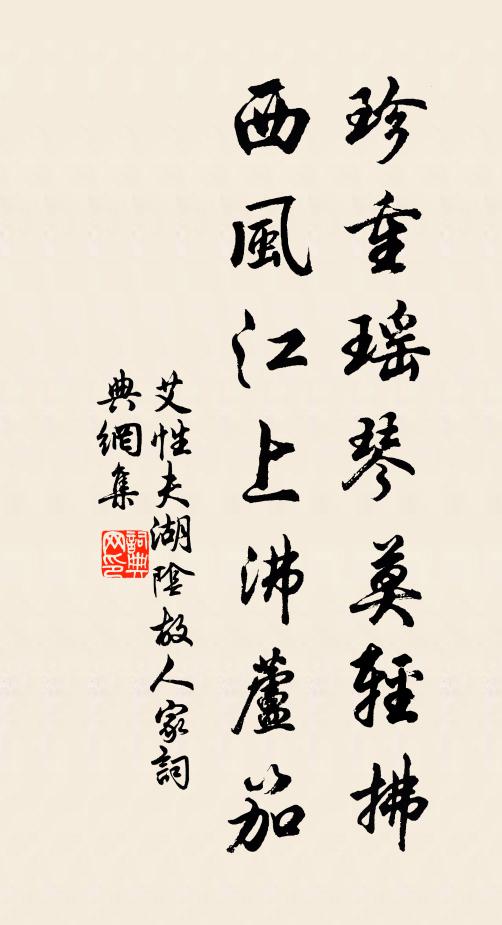 珍重瑶琴莫輕拂
西風江上沸蘆笳
艾性夫湖陰故人家詞
典網集
詞典
网印